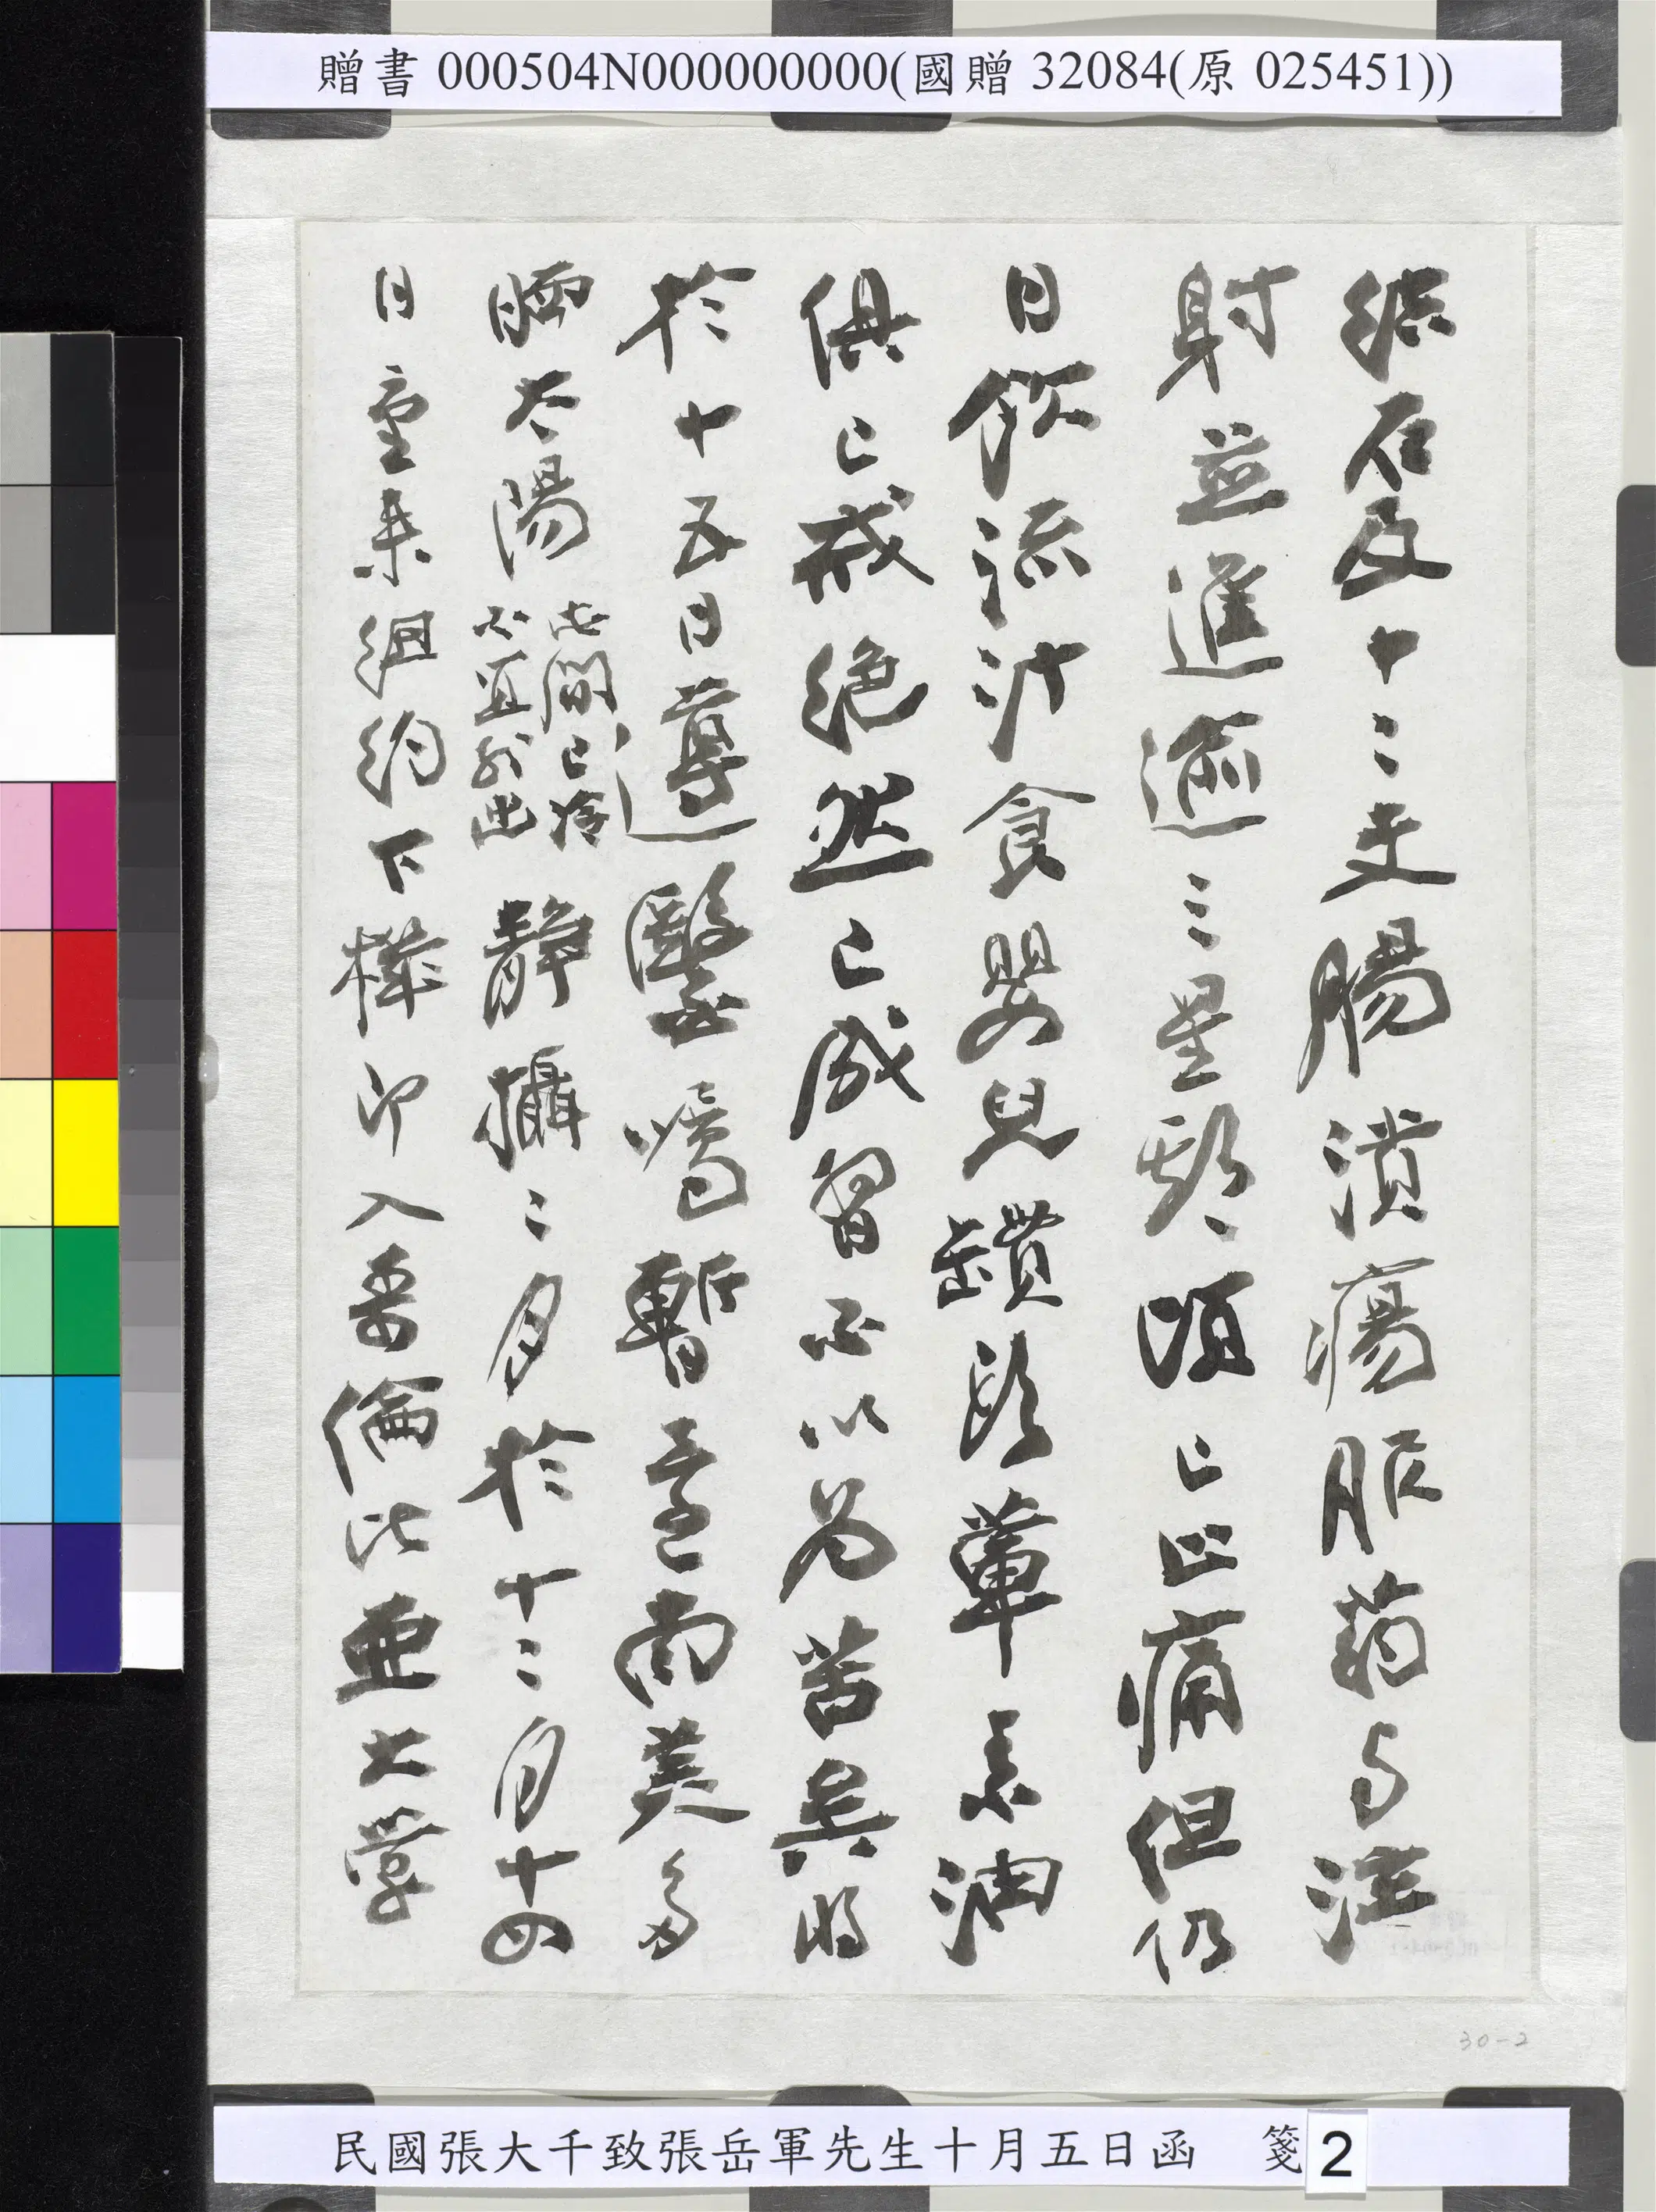 贈書 000504N000000000(國贈 32084(原 025451))
結石及十二支腸潰瘍服药与注
射並進逾三星期頃已止痛但仍
日飲流汁食嬰兒罐頭葷素油
俱已戒絕然已成習不以为苦矣明
於十五日遵醫囑暫至南美多
晒太陽
此間已冷
不宜外出
靜攝二月於十二月十四
日重来紐約下機即入哥倫比亜大学
30-2
民國張大千致張岳軍先生十月五日函 箋2